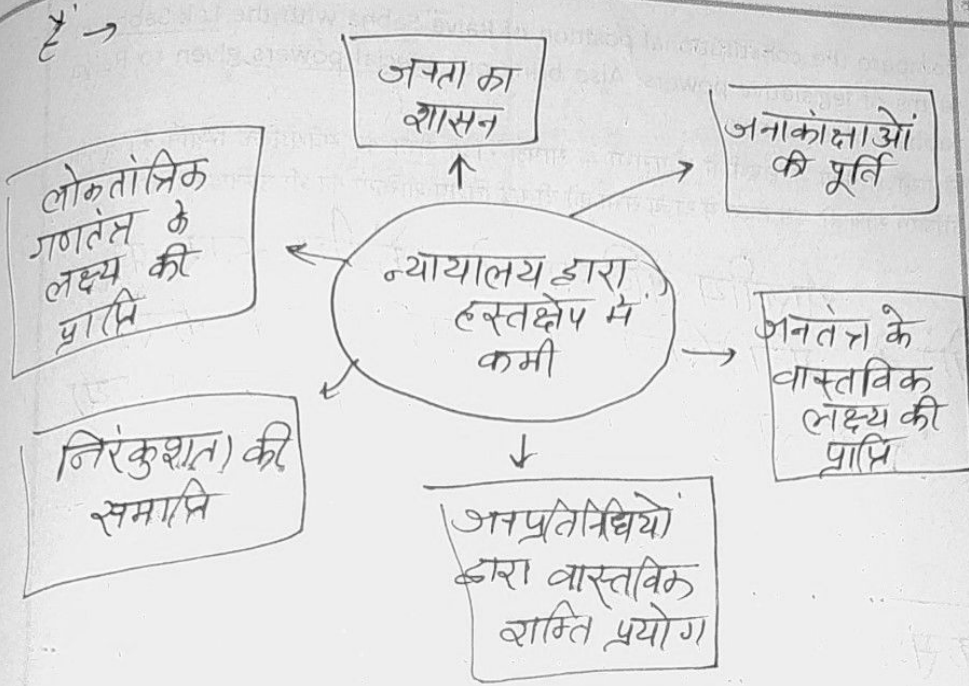 है →
जनता का
शासन
जनाकांक्षाओं
की पूर्ति
लोकतांत्रिक
गणतंत्र के
लक्ष्य की
प्राप्ति
न्यायालय द्वारा
हस्तक्षेप में
कमी
जनतंत्र के
वास्तविक
लक्ष्य की
प्राप्ति
निरंकुशता की
समाप्ति
जनप्रतिनिधियों
द्वारा वास्तविक
शक्ति प्रयोग